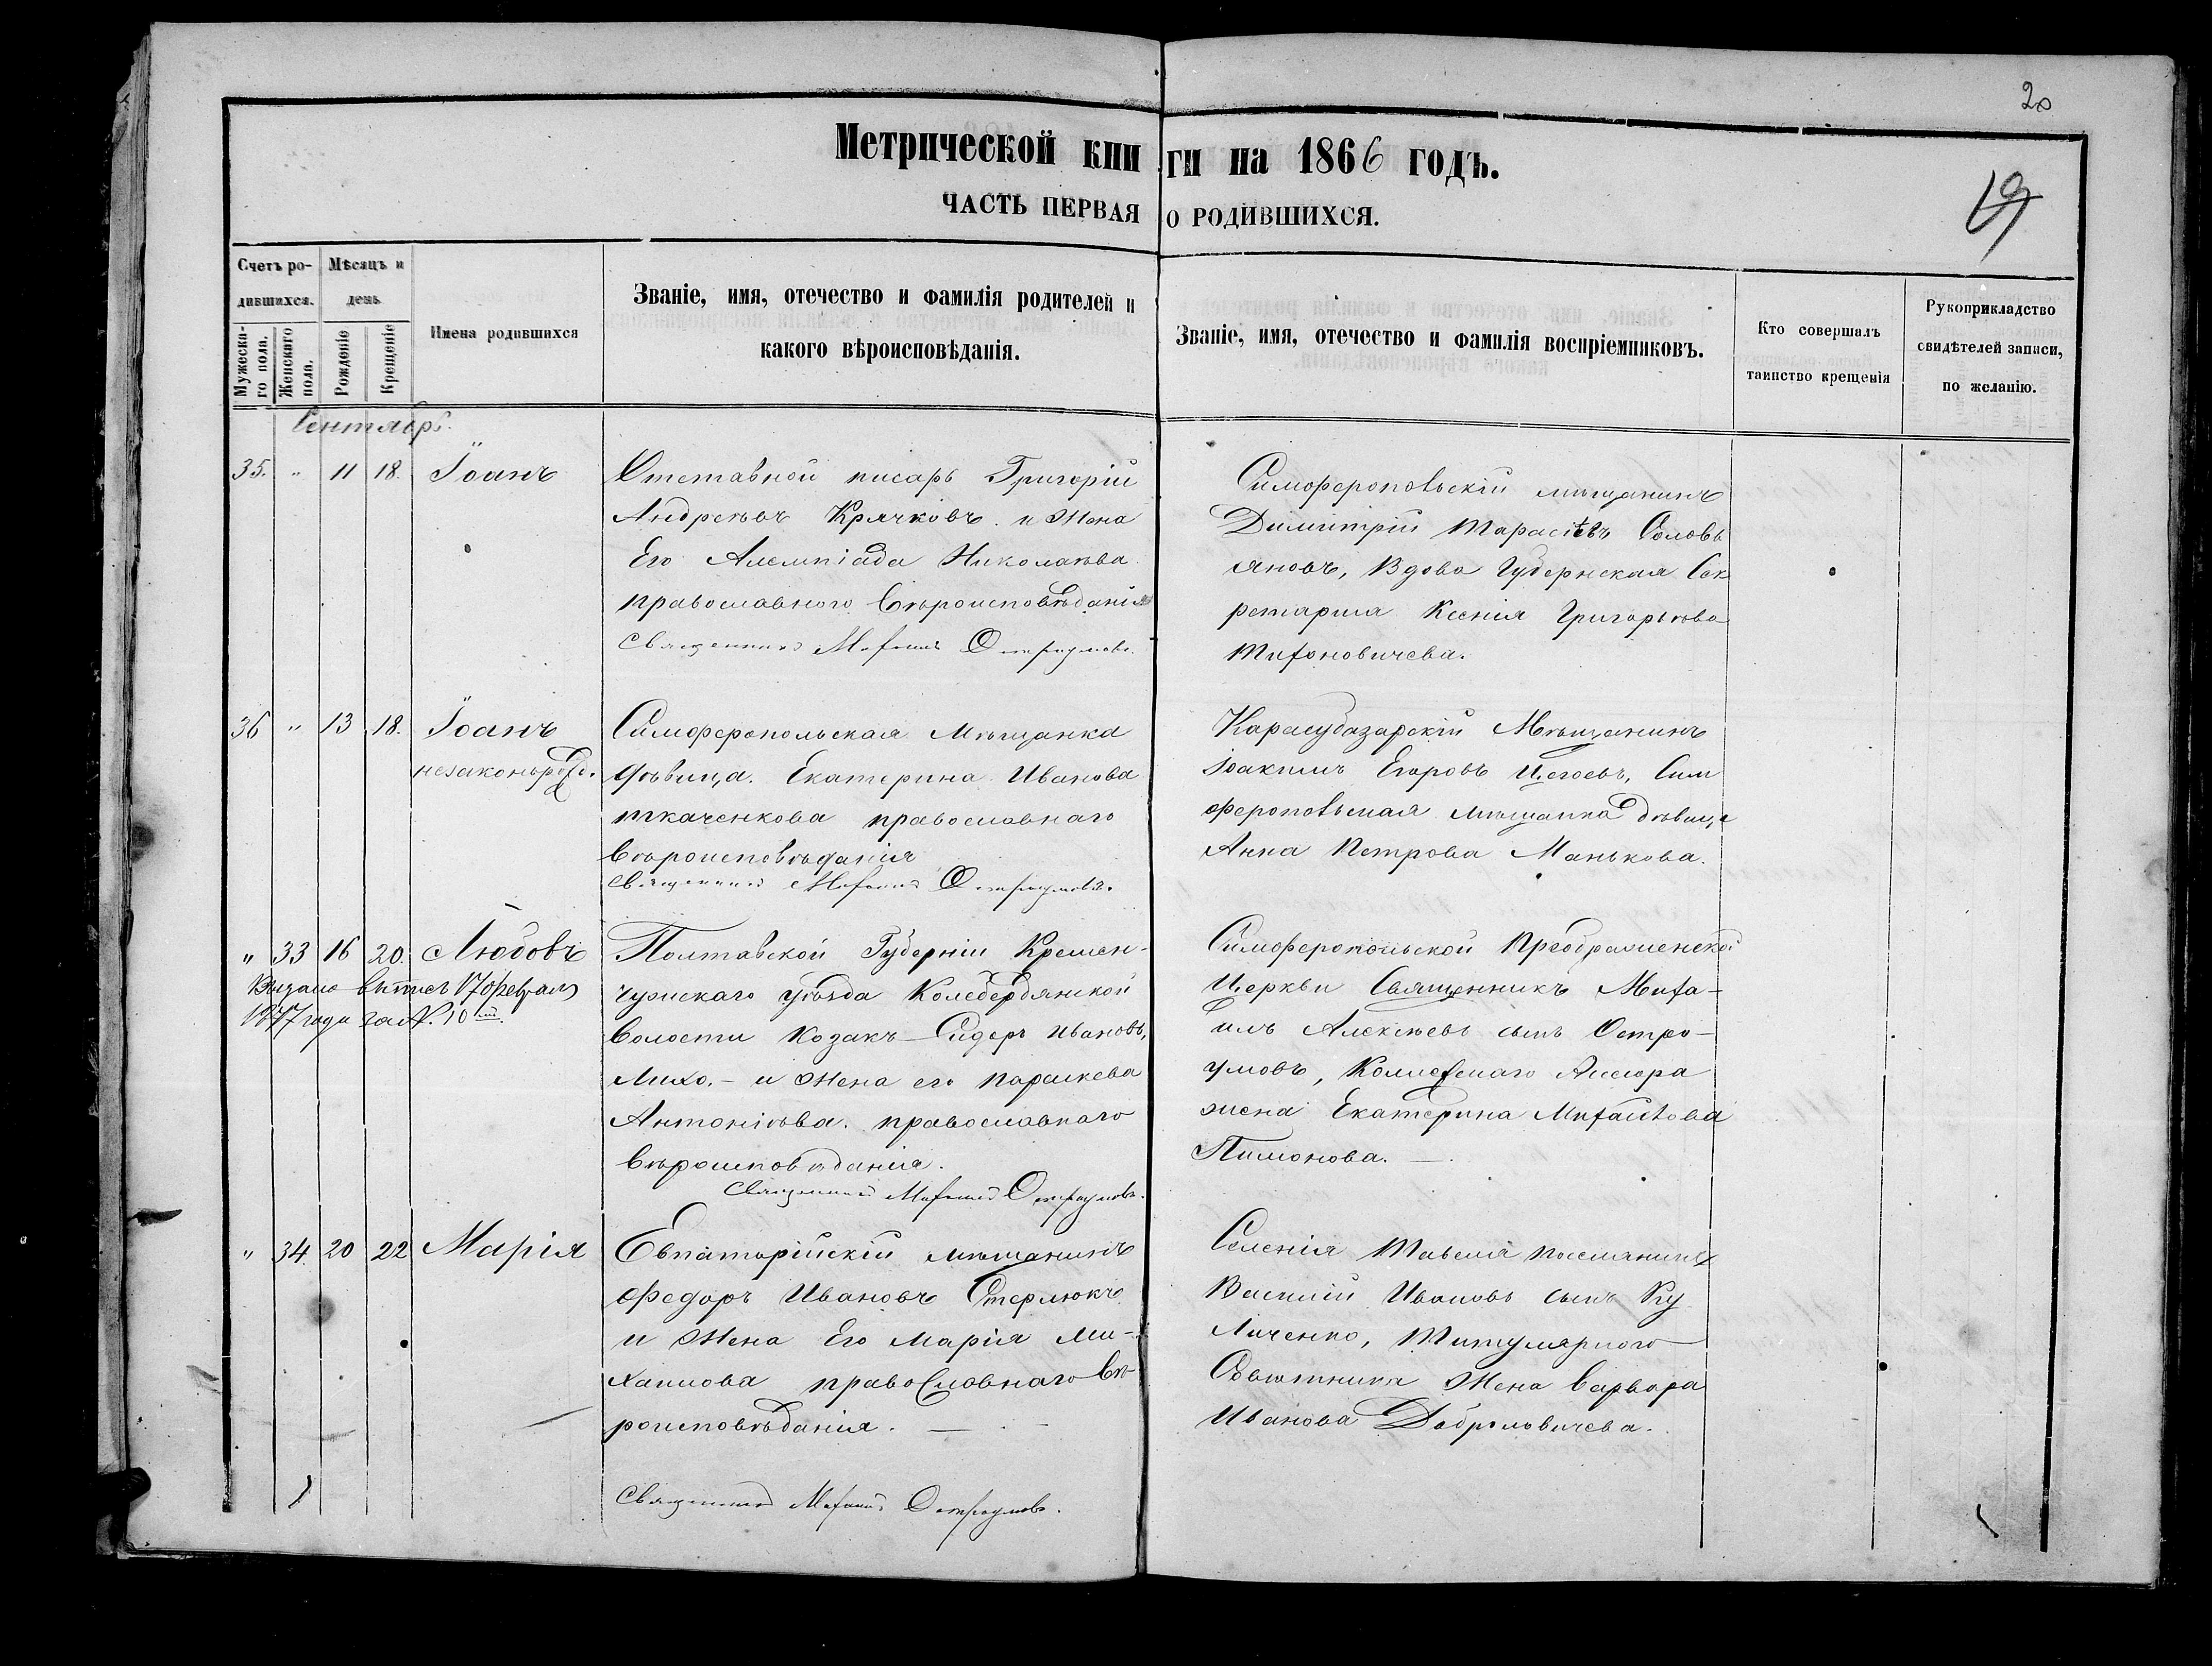 20
19
Метрической кни ги на 1866 годъ.
ЧАСТЬ ПЕРВАЯ О РОДИВШИХСЯ.
Счетъ ро-
дившихся.
Мужеска-
го пола.
Женскаго
пола.
Мѣсяцъ и
день
Рожденіе
Крещеніе
Имена родившихся
Званіе, имя, отечество и фамилія родителей и
какого вѣроисповѣданія.
Званіе, имя, отечество и фамилія воспріемниковъ.
Кто совершалъ
таинство крещенія
Рукоприкладство
свидѣтелей записи,
по желанію.
Сентябрь.
35. " 11 18. Іоанъ
Отставной писарь Григорій
Андреевъ Крячковъ и Жена
Его Алемпіада Николаева
православного вѣроисповѣданія
Священникъ Михаилъ Остроумовъ.
Симферопольскій мѣщанинъ
Димитрій Тарасіевъ Соловь
яновъ, Вдова Губернская Сек
ретарша Ксенія Григорьева
Тихоновичева.
36 " 13 18. Іоанъ
незаконорожд.
Симферопольская Мѣщанка
дѣвица. Екатерина Иванова
ткаченкова православнаго
вѣроисповѣданія
Священникъ Михаилъ Остроумовъ.
Карасубазарскій Мѣщанинъ
Іоакимъ Егоровъ Щегоевъ, Сим
феропольская мѣщанка дѣвица
Анна Петрова Манькова.
" 33 16 20. Любовь
Выдано выпись 17 февраля
1877 года за №. 10 ш.
Полтавской Губерніи Кремен-
чугскаго уѣзда Колебердянской
волости Козакъ Сидоръ Ивановъ,
Лихо. – и Жена его Параскева
Антоніева. православнаго
вѣроисповѣданія.
Священникъ Михаилъ Остроумовъ.
Симферопольской Преображенской
Церкви Священникъ Миха-
илъ Алексѣевъ сынъ Остро-
умовъ, Колежскаго Ассесора
жена Екатерина Михайлова
Пимонова. —
" 34. 20 22 Марія
Евпаторійскій мѣщанинъ
Федоръ Ивановъ Стерлюкъ
и Жена Его Марія Ми-
хаилова православнаго вѣ-
роисповѣданія. —
Священникъ Михаилъ Остроумовъ.
Селенія поселянинъ
Василій Ивановъ сынъ Ку
личенко, Титулярного
Совѣтника Жена Варвара
Иванова